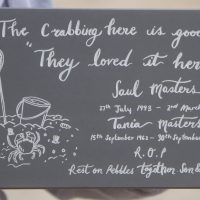 The Crabbing here is good
"They loved it here
Saul Masters
27th July 1993 - 2nd March
Tania Masters
15th September 1962 - 30th September
R.O.P
Rest on Pebbles together Son &